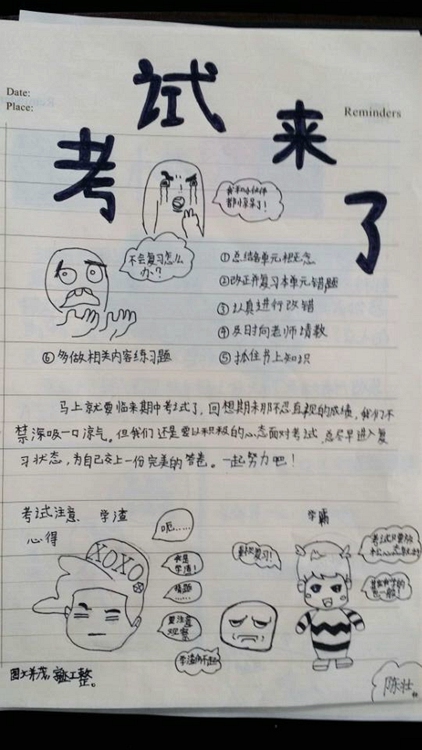 Date:
Place:
Reminders
考试来了
我和小伙伴
都惊呆了!
不会复习怎么
办?
①总结各单元概念
②改正并复习本单元错题
③认真进行改错
④及时向老师请教
⑤抓住书上知识
⑥多做相关内容练习题
马上就要临来期中考试了,回想期末那不忍直视的成绩,我们不
禁深吸一口凉气。但我们还是要以积极的心态面对考试,尽早进入复
习状态,为自己交上一份完美的答卷。一起努力吧!
考试注意、
心得
学渣
学霸
呃……
我是
学渣!
XOXO
要注意
观察
学渣伤不起
图文并茂,
工整。
陈壮